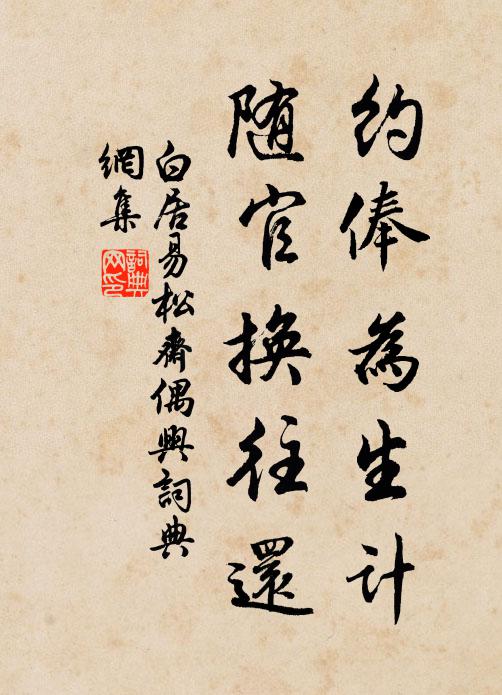 約俸為生計
随官換往還
白居易松齋偶興詞典
網集
詞典
网印